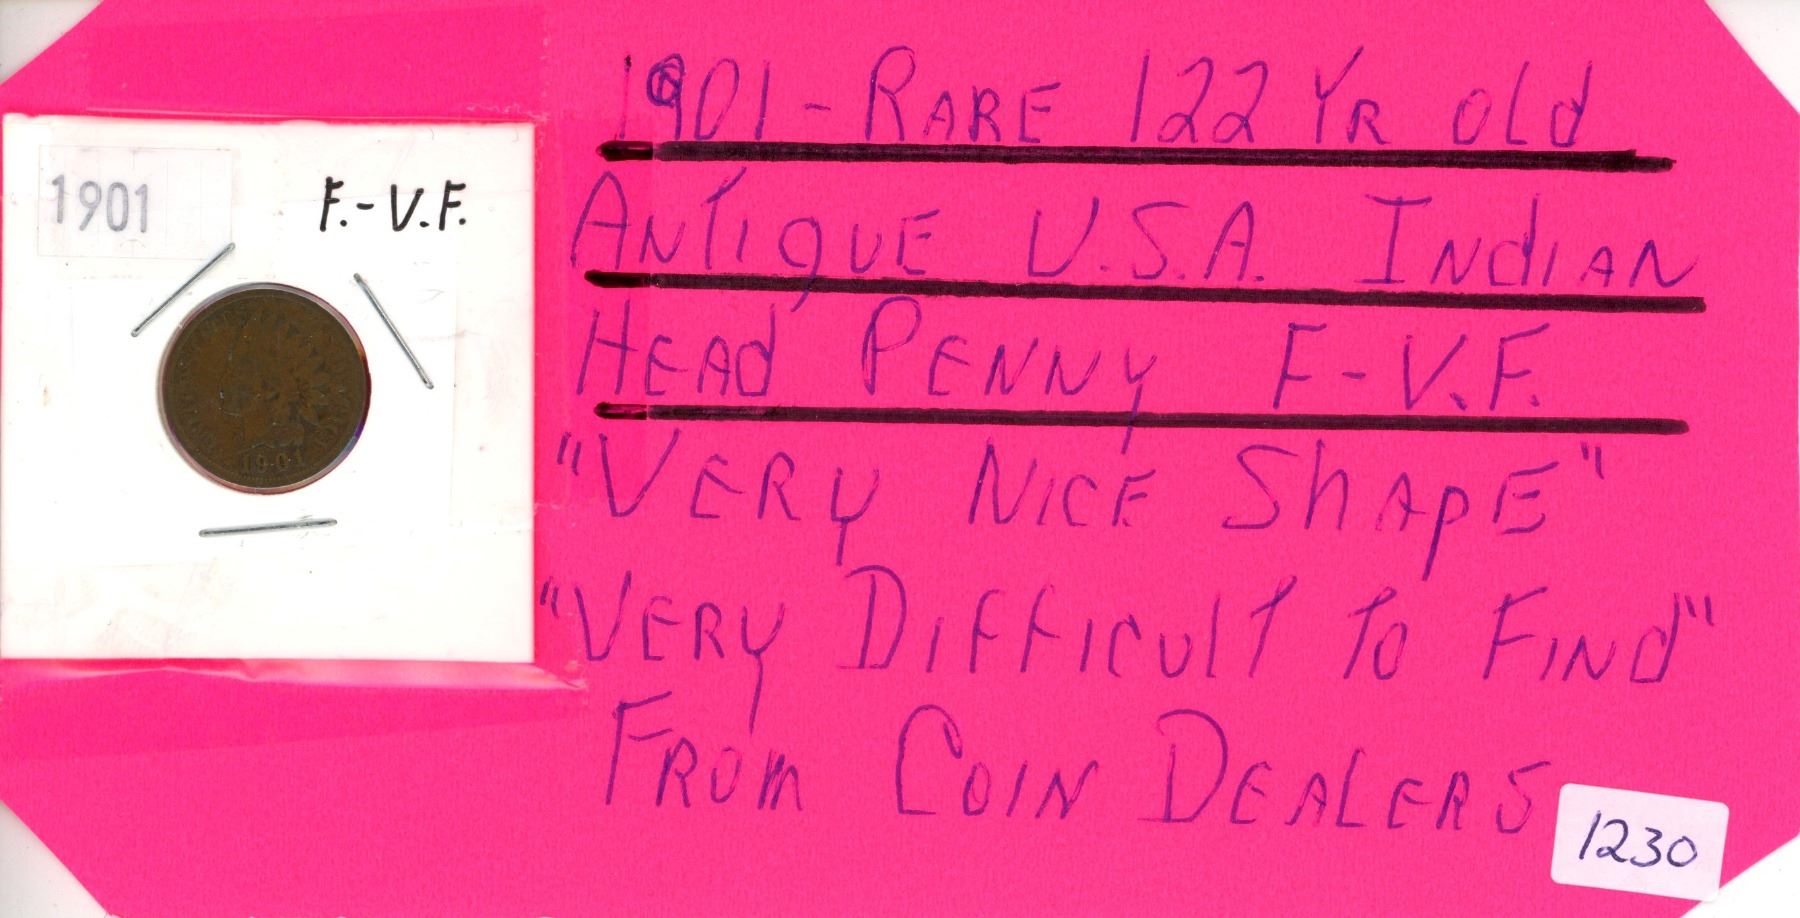 1901
F.-V.F.
1901
1901 - RARE 122 YR old
ANTIQUE U.S.A. INdIAN
HEAd PENNY F-V.F.
"VERY NICE ShApE"
"VERY DIFFICUlT To FINd"
FROM COIN DEALERS
1230